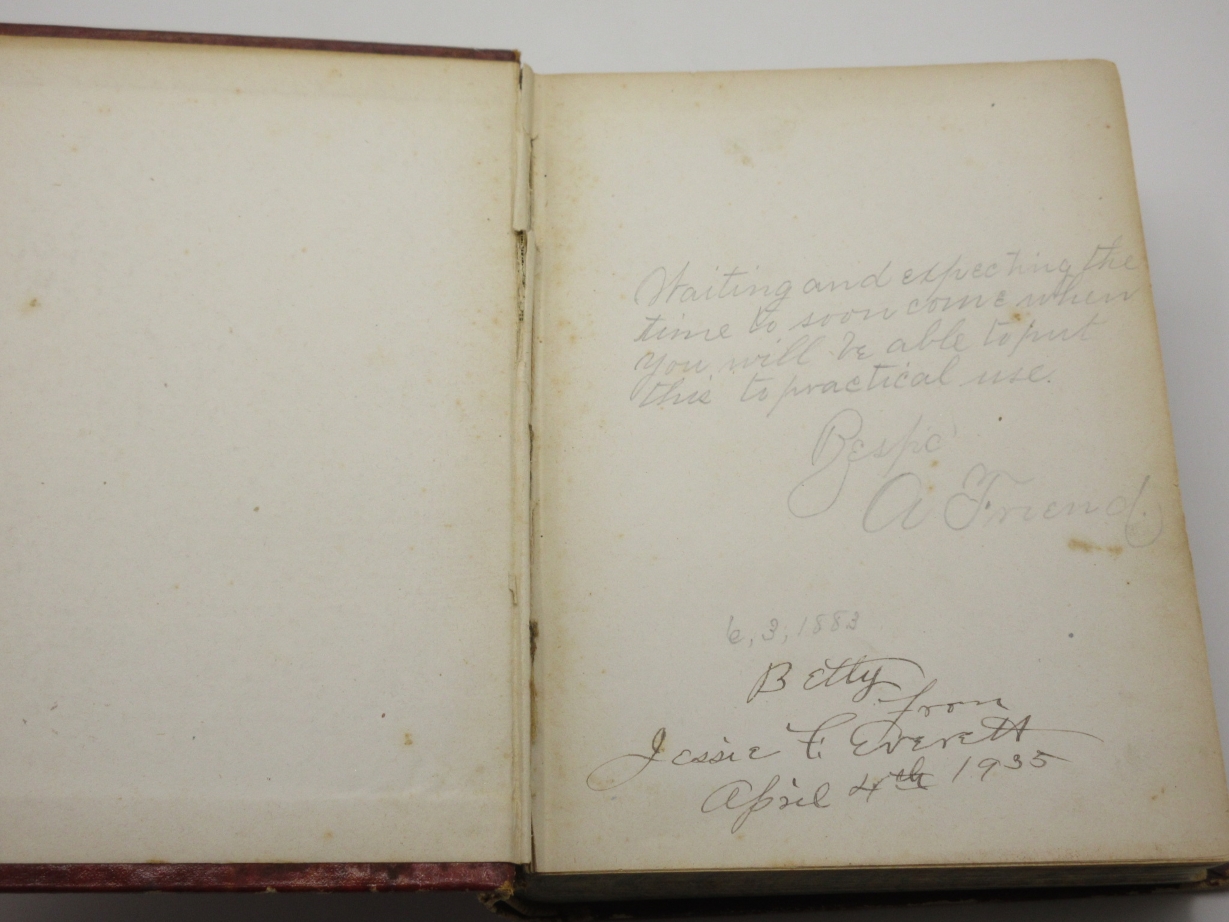 Waiting and expecting the
time to soon come when
you will be able to put
this to practical use.
Respc
A Friend.
6, 3, 1883
Betty
from
Jessie F. Everett
April 4th 1935